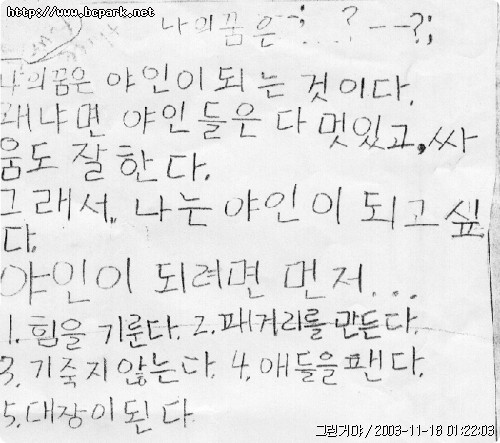 http://www.bcpark.net
나의꿈은-;...?--?;
나의꿈은 야인이 되는 것이다.
왜냐면 야인들은 다 멋있고, 싸
움도 잘 한다.
그래서, 나는 야인이 되고 싶
다.
야인이 되려면 먼저...
1. 힘을 기룬다. 2. 패거리를 만든다.
3. 기죽지 않는다. 4. 애들을 팬다.
5. 대장이 된다.
그린거야 / 2003-11-18 01:22:03